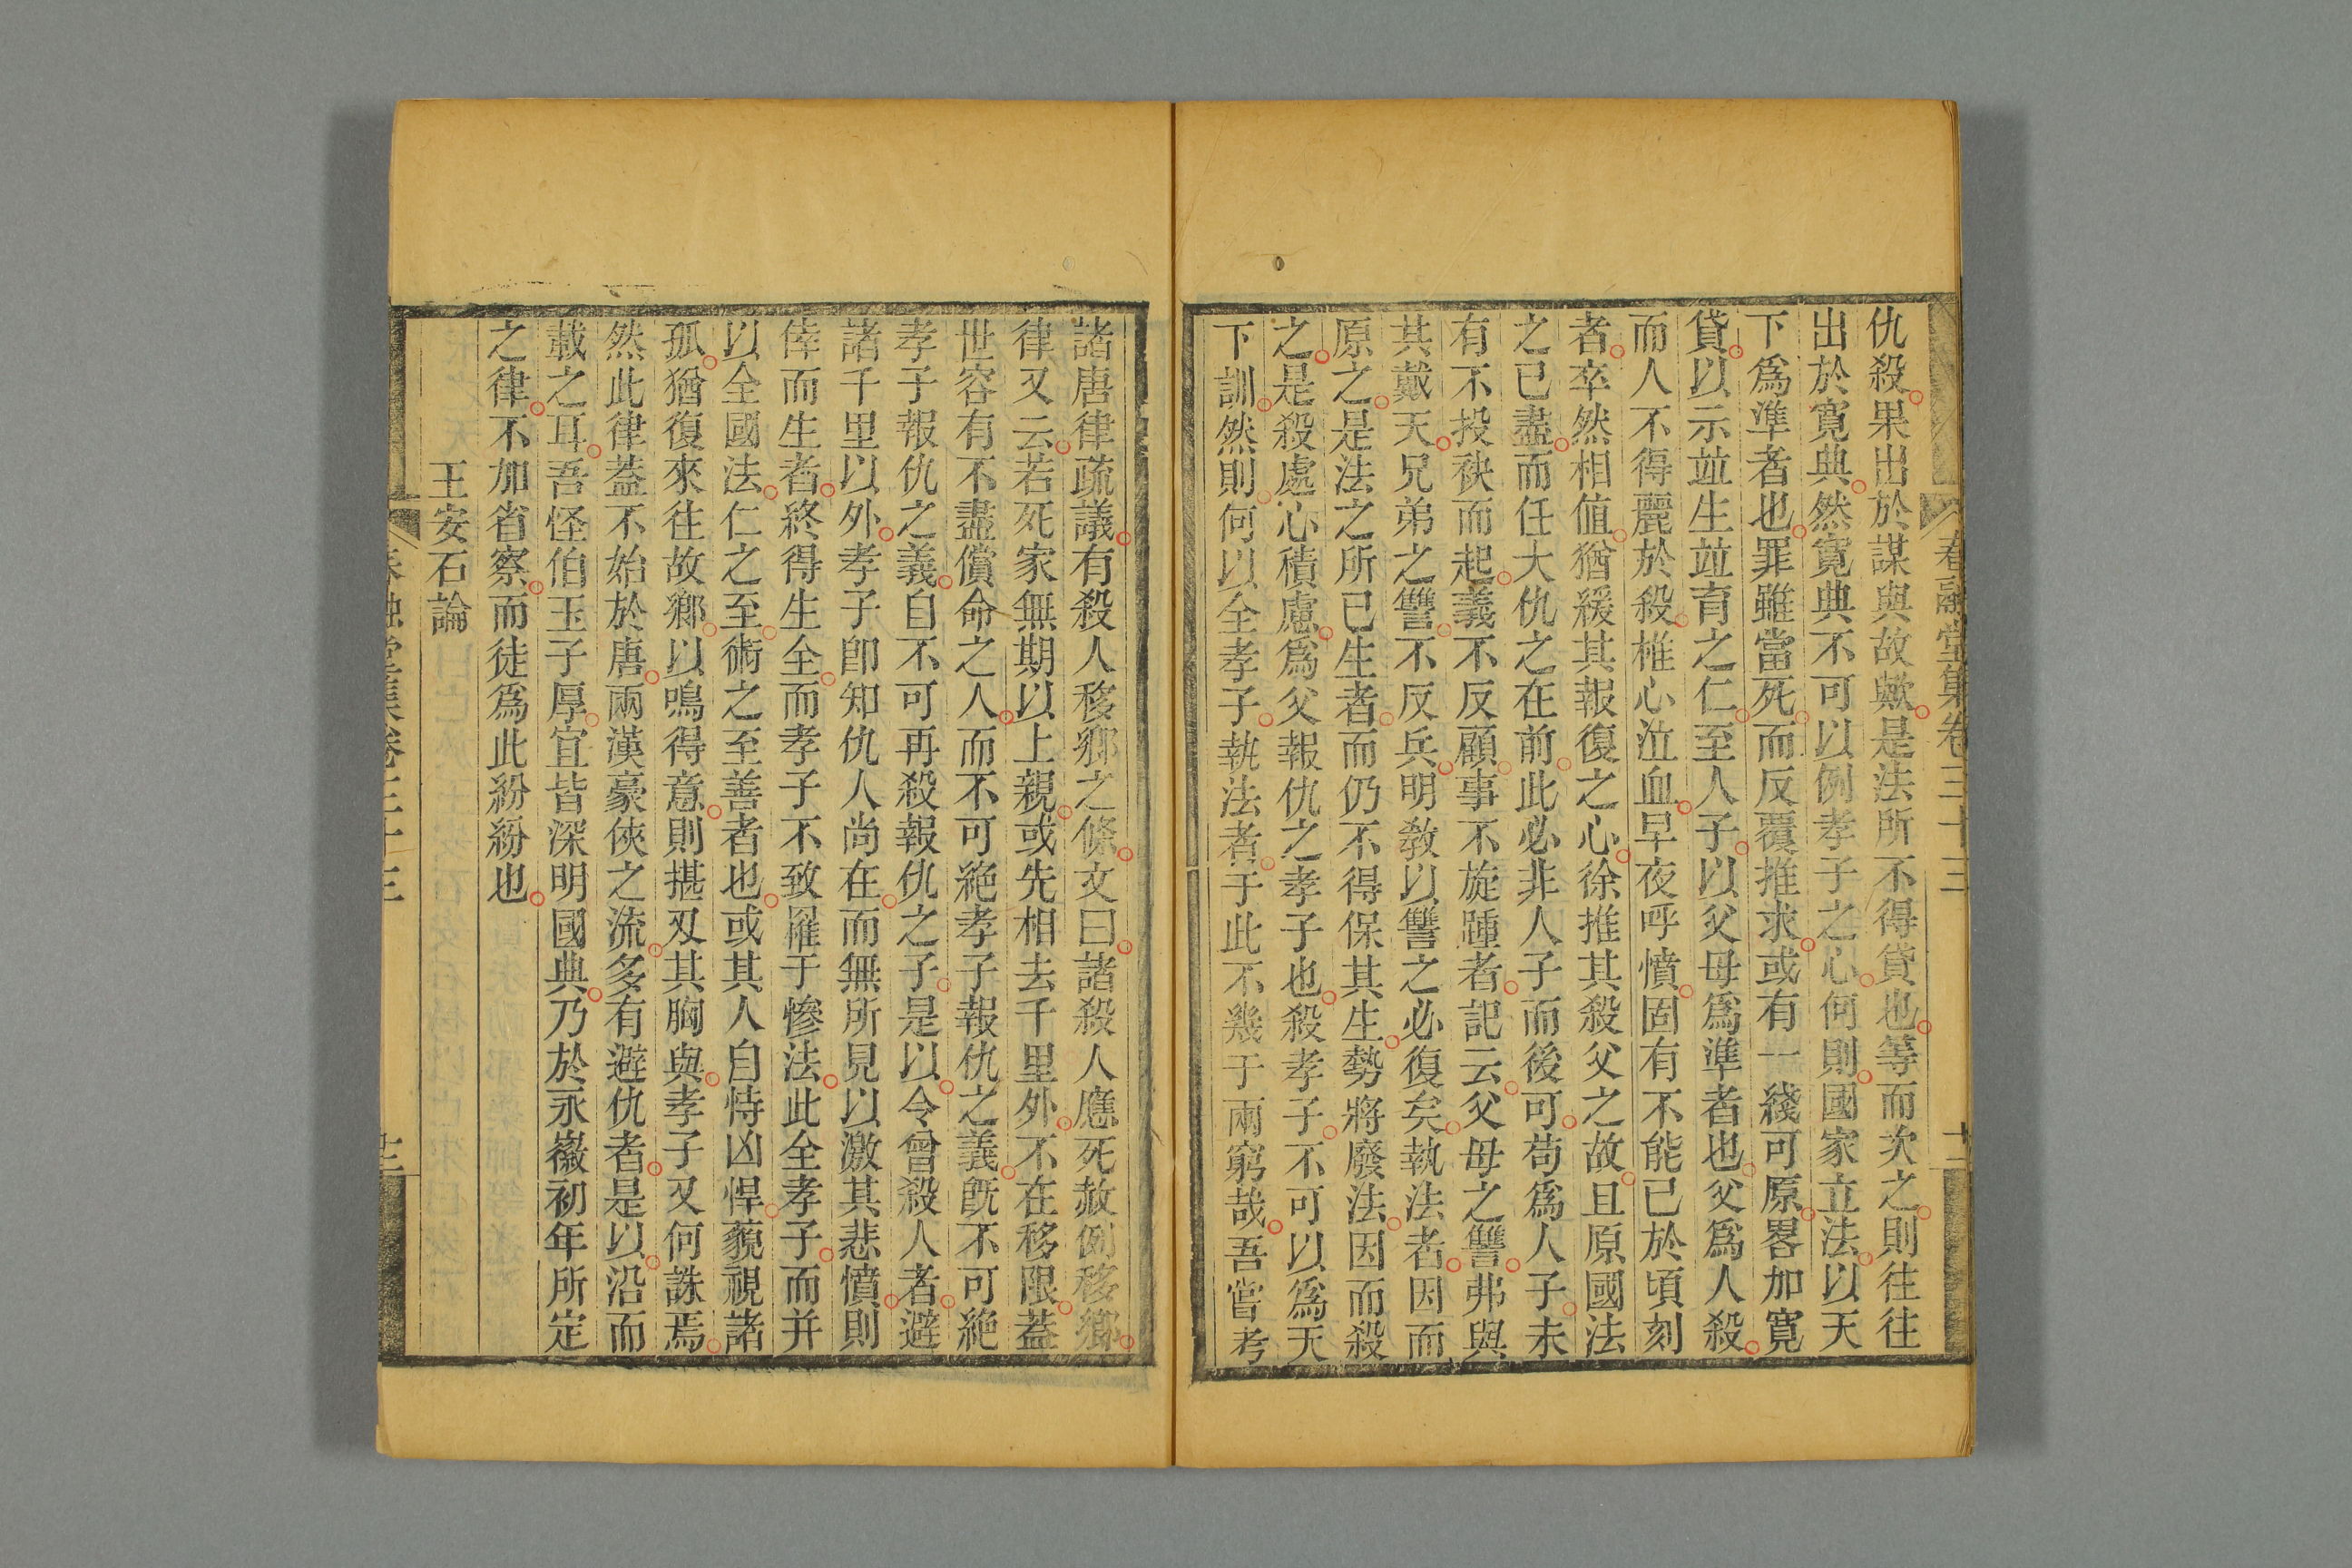 春融堂集卷三十三
十二
仇殺果出於謀與故歟是法所不得貸也等而次之則往往
出於寬典然寬典不可以例孝子之心何則國家立法以天
下爲準者也罪雖當死而反覆推求或有一綫可原畧加寛
貸以示並生並育之仁至人子以父母爲準者也父爲人殺
而人不得麗於殺椎心泣血早夜呼憤固有不能已於頃刻
者卒然相值猶緩其報復之心徐推其殺父之故且原國法
之已盡而任大仇之在前此必非人子而後可苟爲人子未
有不投袂而起義不反顧事不旋踵者記云父母之讐弗與
其戴天兄弟之讐不反兵明敎以讐之必復矣執法者因而
原之是法之所已生者而仍不得保其生勢將廢法因而殺
之是殺處心積慮爲父報仇之孝子也殺孝子不可以爲天
下訓然則何以全孝子執法者于此不幾于兩窮哉吾嘗考
諸唐律疏議有殺人移鄉之條文曰諸殺人應死赦例移鄉
律又云若死家無期以上親或先相去千里外不在移限葢
世容有不盡償命之人而不可絶孝子報仇之義旣不可絶
孝子報仇之義自不可再殺報仇之子是以令曾殺人者避
諸千里以外孝子卽知仇人尚在而無所見以激其悲憤則
倖而生者終得生全而孝子不致罹于慘法此全孝子而并
以全國法仁之至術之至善者也或其人自恃凶悍藐視諸
孤猶復來往故鄉以鳴得意則揕刄其胸與孝子又何誅焉
然此律葢不始於唐兩漢豪俠之流多有避仇者是以沿而
載之耳吾怪伯玉子厚宜皆深明國典乃於永徽初年所定
之律不加省察而徒爲此紛紛也
王安石論
春融堂集卷三十三
十三